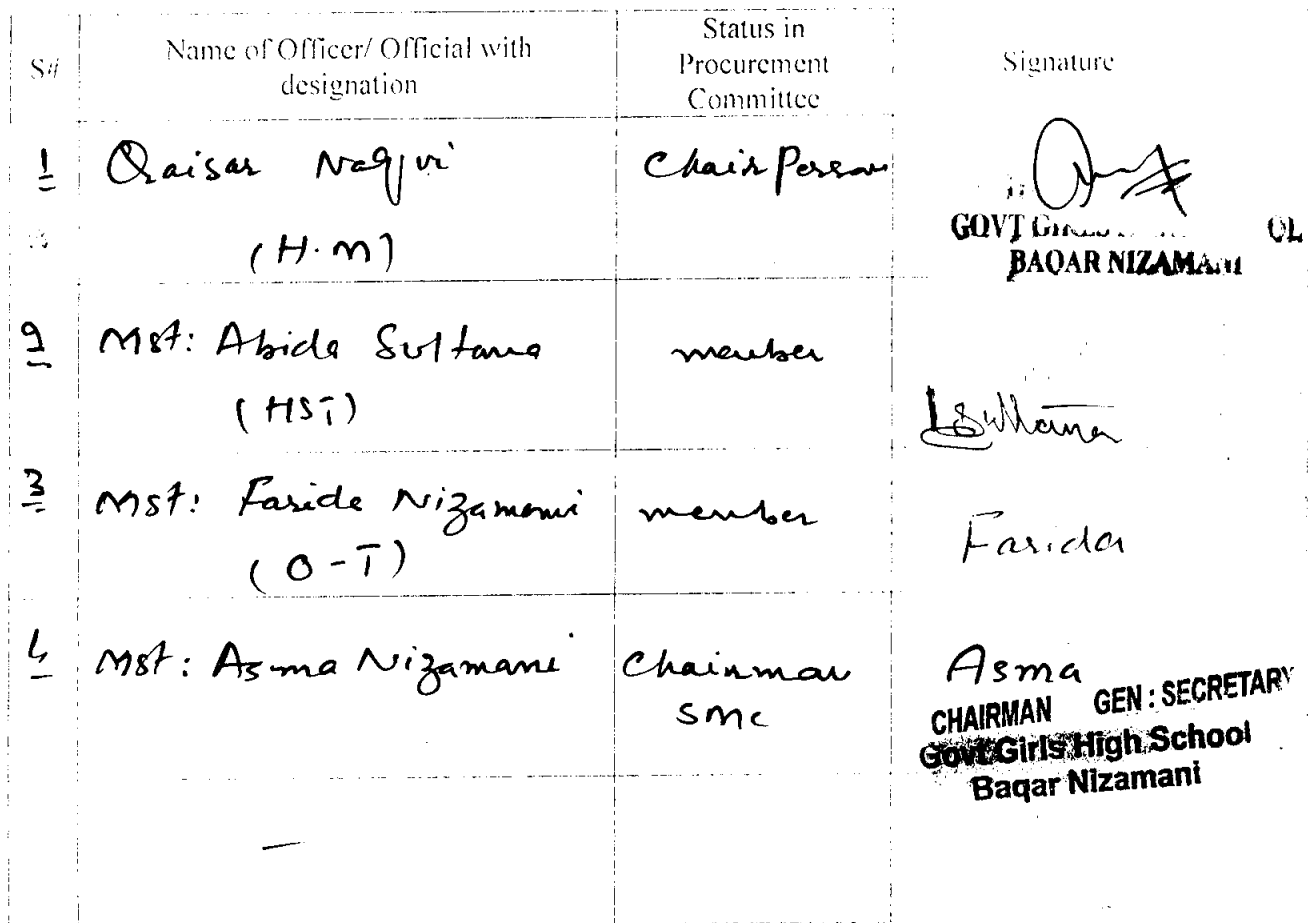 S#
Name of Officer/ Official with
designation
Status in
Procurement
Committee
Signature
1
Qaisar Naqvi
Chair Person
(H.M)
GOVT GIRLS
BAQAR NIZAMANI
2
Mst: Abida Sultana
member
(HST)
Sultana
3
Mst: Farida Nizamani
member
(O-T)
Farida
4
Mst: Asma Nizamani
Chairman
SMC
Asma
CHAIRMAN GEN: SECRETARY
Govt Girls High School
Baqar Nizamani